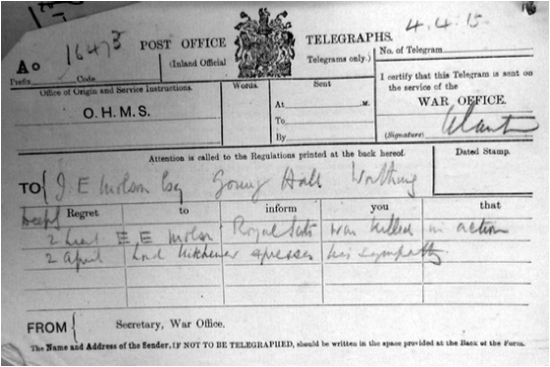 4.4.15
16
A o 16473 POST OFFICE TELEGRAPHS.
(Inland Official Telegrams only.) No. of Telegram
Prefix Code
Office of Origin and Service Instructions. Words. Sent
I certify that this Telegram is sent on
the service of the
At M.
WAR OFFICE.
O.H.M.S.
To
By
(Signature)
Attention is called to the Regulations printed at the back hereof. Dated Stamp.
TO { J. E Molson Esq Hall Worthing
Deeply Regret to inform you that
2 Lieut E E Molson Royal Scots was killed in action
2 April Lord Kitchener expresses his sympathy
FROM { Secretary, War Office.
The Name and Address of the Sender, IF NOT TO BE TELEGRAPHED, should be written in the space provided at the Back of the Form.